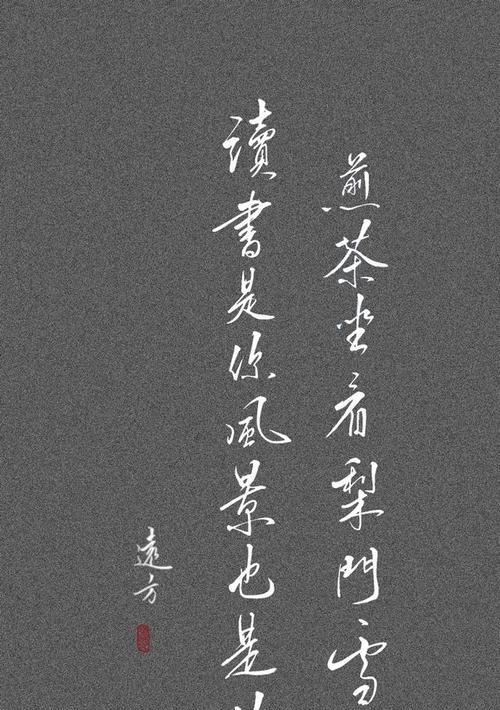 煎茶坐看梨門雪
讀書是你風景也是
遠方